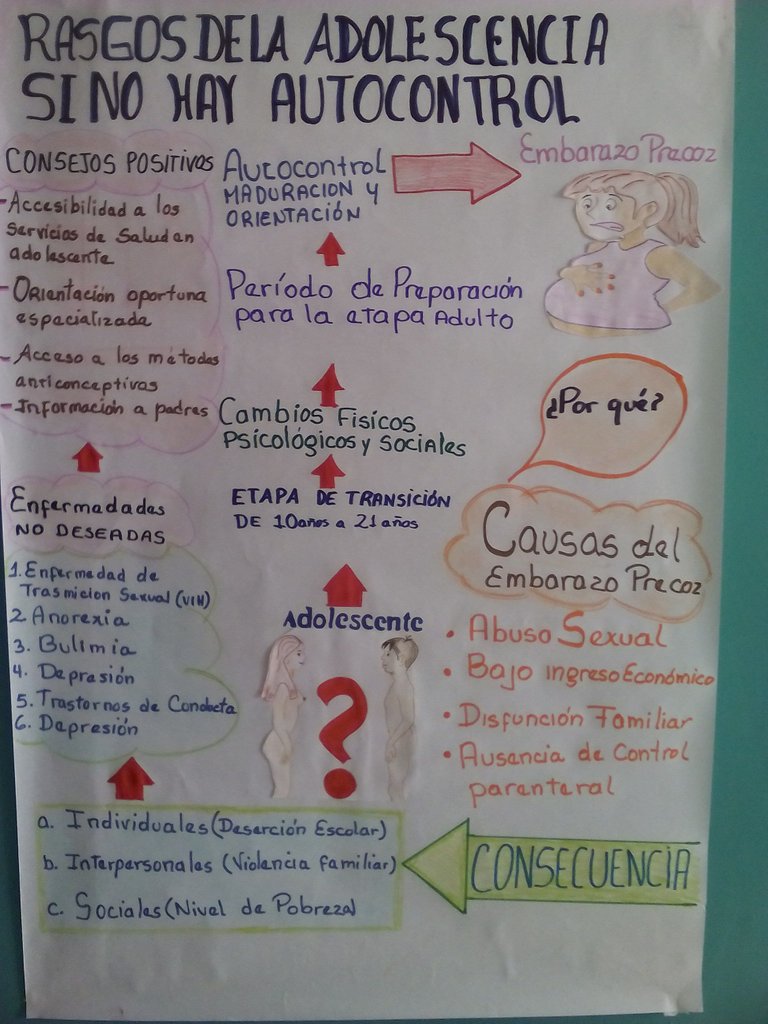 RASGOS DE LA ADOLESCENCIA
SI NO HAY AUTOCONTROL
CONSEJOS POSITIVOS
-Accesibilidad a los
servicios de Salud en
adolescente
- Orientación oportuna
espacializada
- Acceso a los métodos
anticonceptivas
-Información a padres
Enfermedades
NO DESEADAS
1. Enfermedad de
Trasmicion Sexual (VIH)
2 Anorexia
3. Bulimia
4. Depresión
5. Trastornos de Conducta
6. Depresión
Autocontrol
MADURACION Y
ORIENTACIÓN
Período de Preparación
para la etapa Adulto
Cambios Fisicos
Psicológicos y sociales
ETAPA DE TRANSICIÓN
DE 10 años a 21 años
Adolescente
?
Embarazo Precoz
¿Por qué?
Causas del
Embarazo Precoz
• Abuso Sexual
• Bajo ingreso Económico
• Disfunción Familiar
• Ausencia de Control
parenteral
CONSECUENCIA
a. Individuales (Deserción Escolar)
b. Interpersonales (Violencia familiar)
c. Sociales (Nivel de Pobreza)